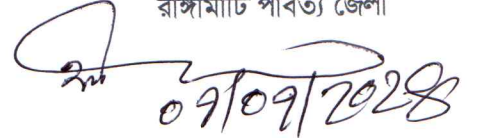 রাঙ্গামাটি পার্বত্য জেলা
০৭/০৭/২০২৪